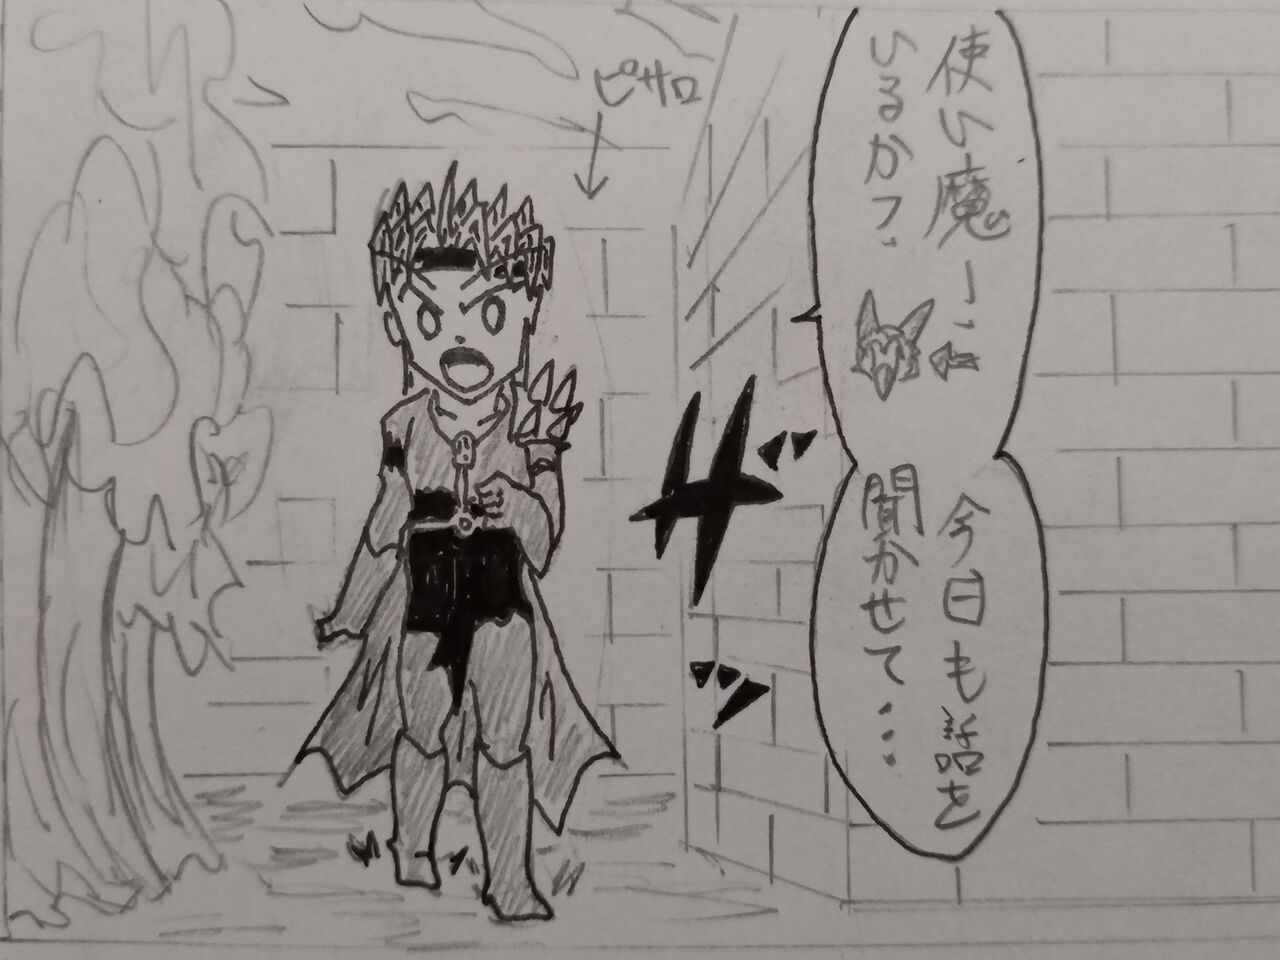 使い魔ー、
いるかァ、
今日も話を
聞かせて・・・
ピサロ
ザッ